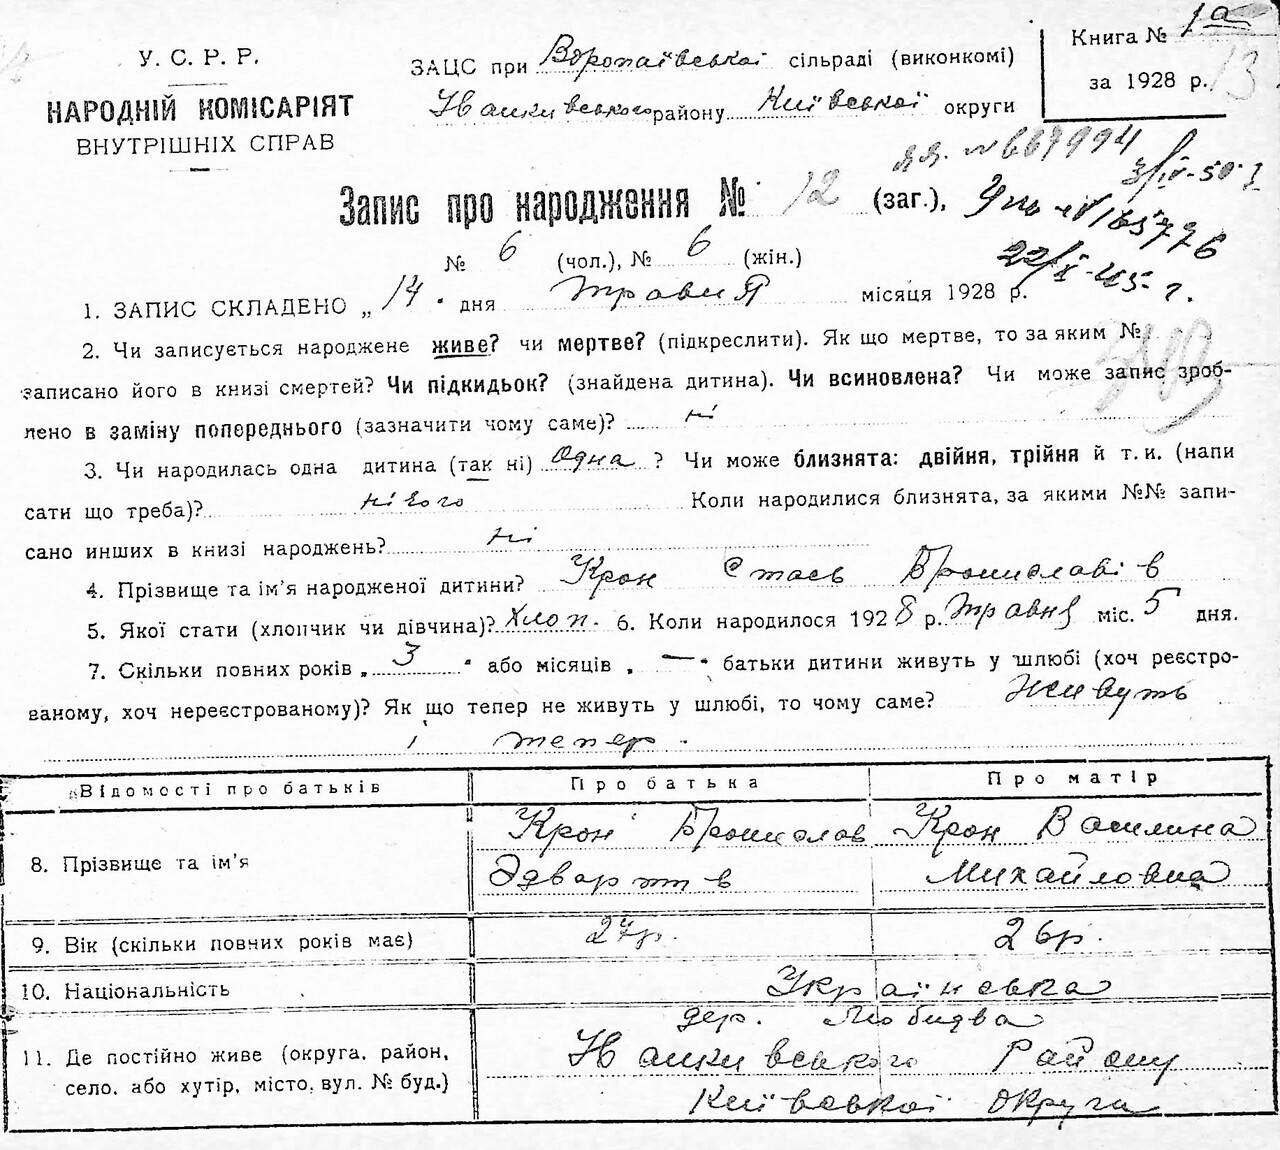 У. С. Р. Р.
НАРОДНІЙ КОМІСАРІЯТ
ВНУТРІШНІХ СПРАВ
ЗАЦС при Воропаївської сільраді (виконкомі)
району Київської округи
Книга № 1а
за 1928 р. 13
Запис про народження № 12 (заг.),
№ 6 (чол.), № 6 (жін.)
№ 667994
3/IV-50 г
№ 165776
22/X-45 г.
1. ЗАПИС СКЛАДЕНО „ 14 " дня травня місяця 1928 р.
2. Чи записується народжене живе? чи мертве? (підкреслити). Як що мертве, то за яким №
записано його в книзі смертей? Чи підкидьок? (знайдена дитина). Чи всиновлена? Чи може запис зроб-
лено в заміну попереднього (зазначити чому саме)? ні
3. Чи народилась одна дитина (так ні) одна ? Чи може близнята: двійня, трійня й т. и. (напи
сати що треба)? нікого Коли народилися близнята, за якими №№ запи-
сано инших в книзі народжень? ні
4. Прізвище та ім'я народженої дитини? Крон Стась Броніславів
5. Якої стати (хлопчик чи дівчина)? хлоп. 6. Коли народилося 1928 р. травня міс. 5 дня.
7. Скільки повних років „ 3 " або місяців „ — " батьки дитини живуть у шлюбі (хоч реєстро-
ваному, хоч нереєстрованому)? Як що тепер не живуть у шлюбі, то чому саме? Живуть
і тепер.
Відомості про батьків Про батька Про матір
8. Прізвище та ім'я Крон Броніслав Крон Василина
Эдвартів Михайловна
9. Вік (скільки повних років має) 27р. 26р.
10. Національність Українська
11. Де постійно живе (округа, район,
село, або хутір, місто, вул. № буд.)
дер.
Району
Київської округа